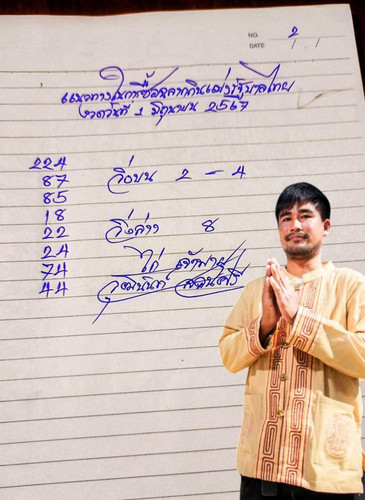 NO. 2
DATE / /
แนวทางในการซื้อสลากกินแบ่งรัฐบาลไทย
งวดวันที่ 1 มิถุนายน 2567
224
87 วิ่งบน 2 - 4
85
18
22 วิ่งล่าง 8
24
74 ไก่ เจ้าพายุ
44